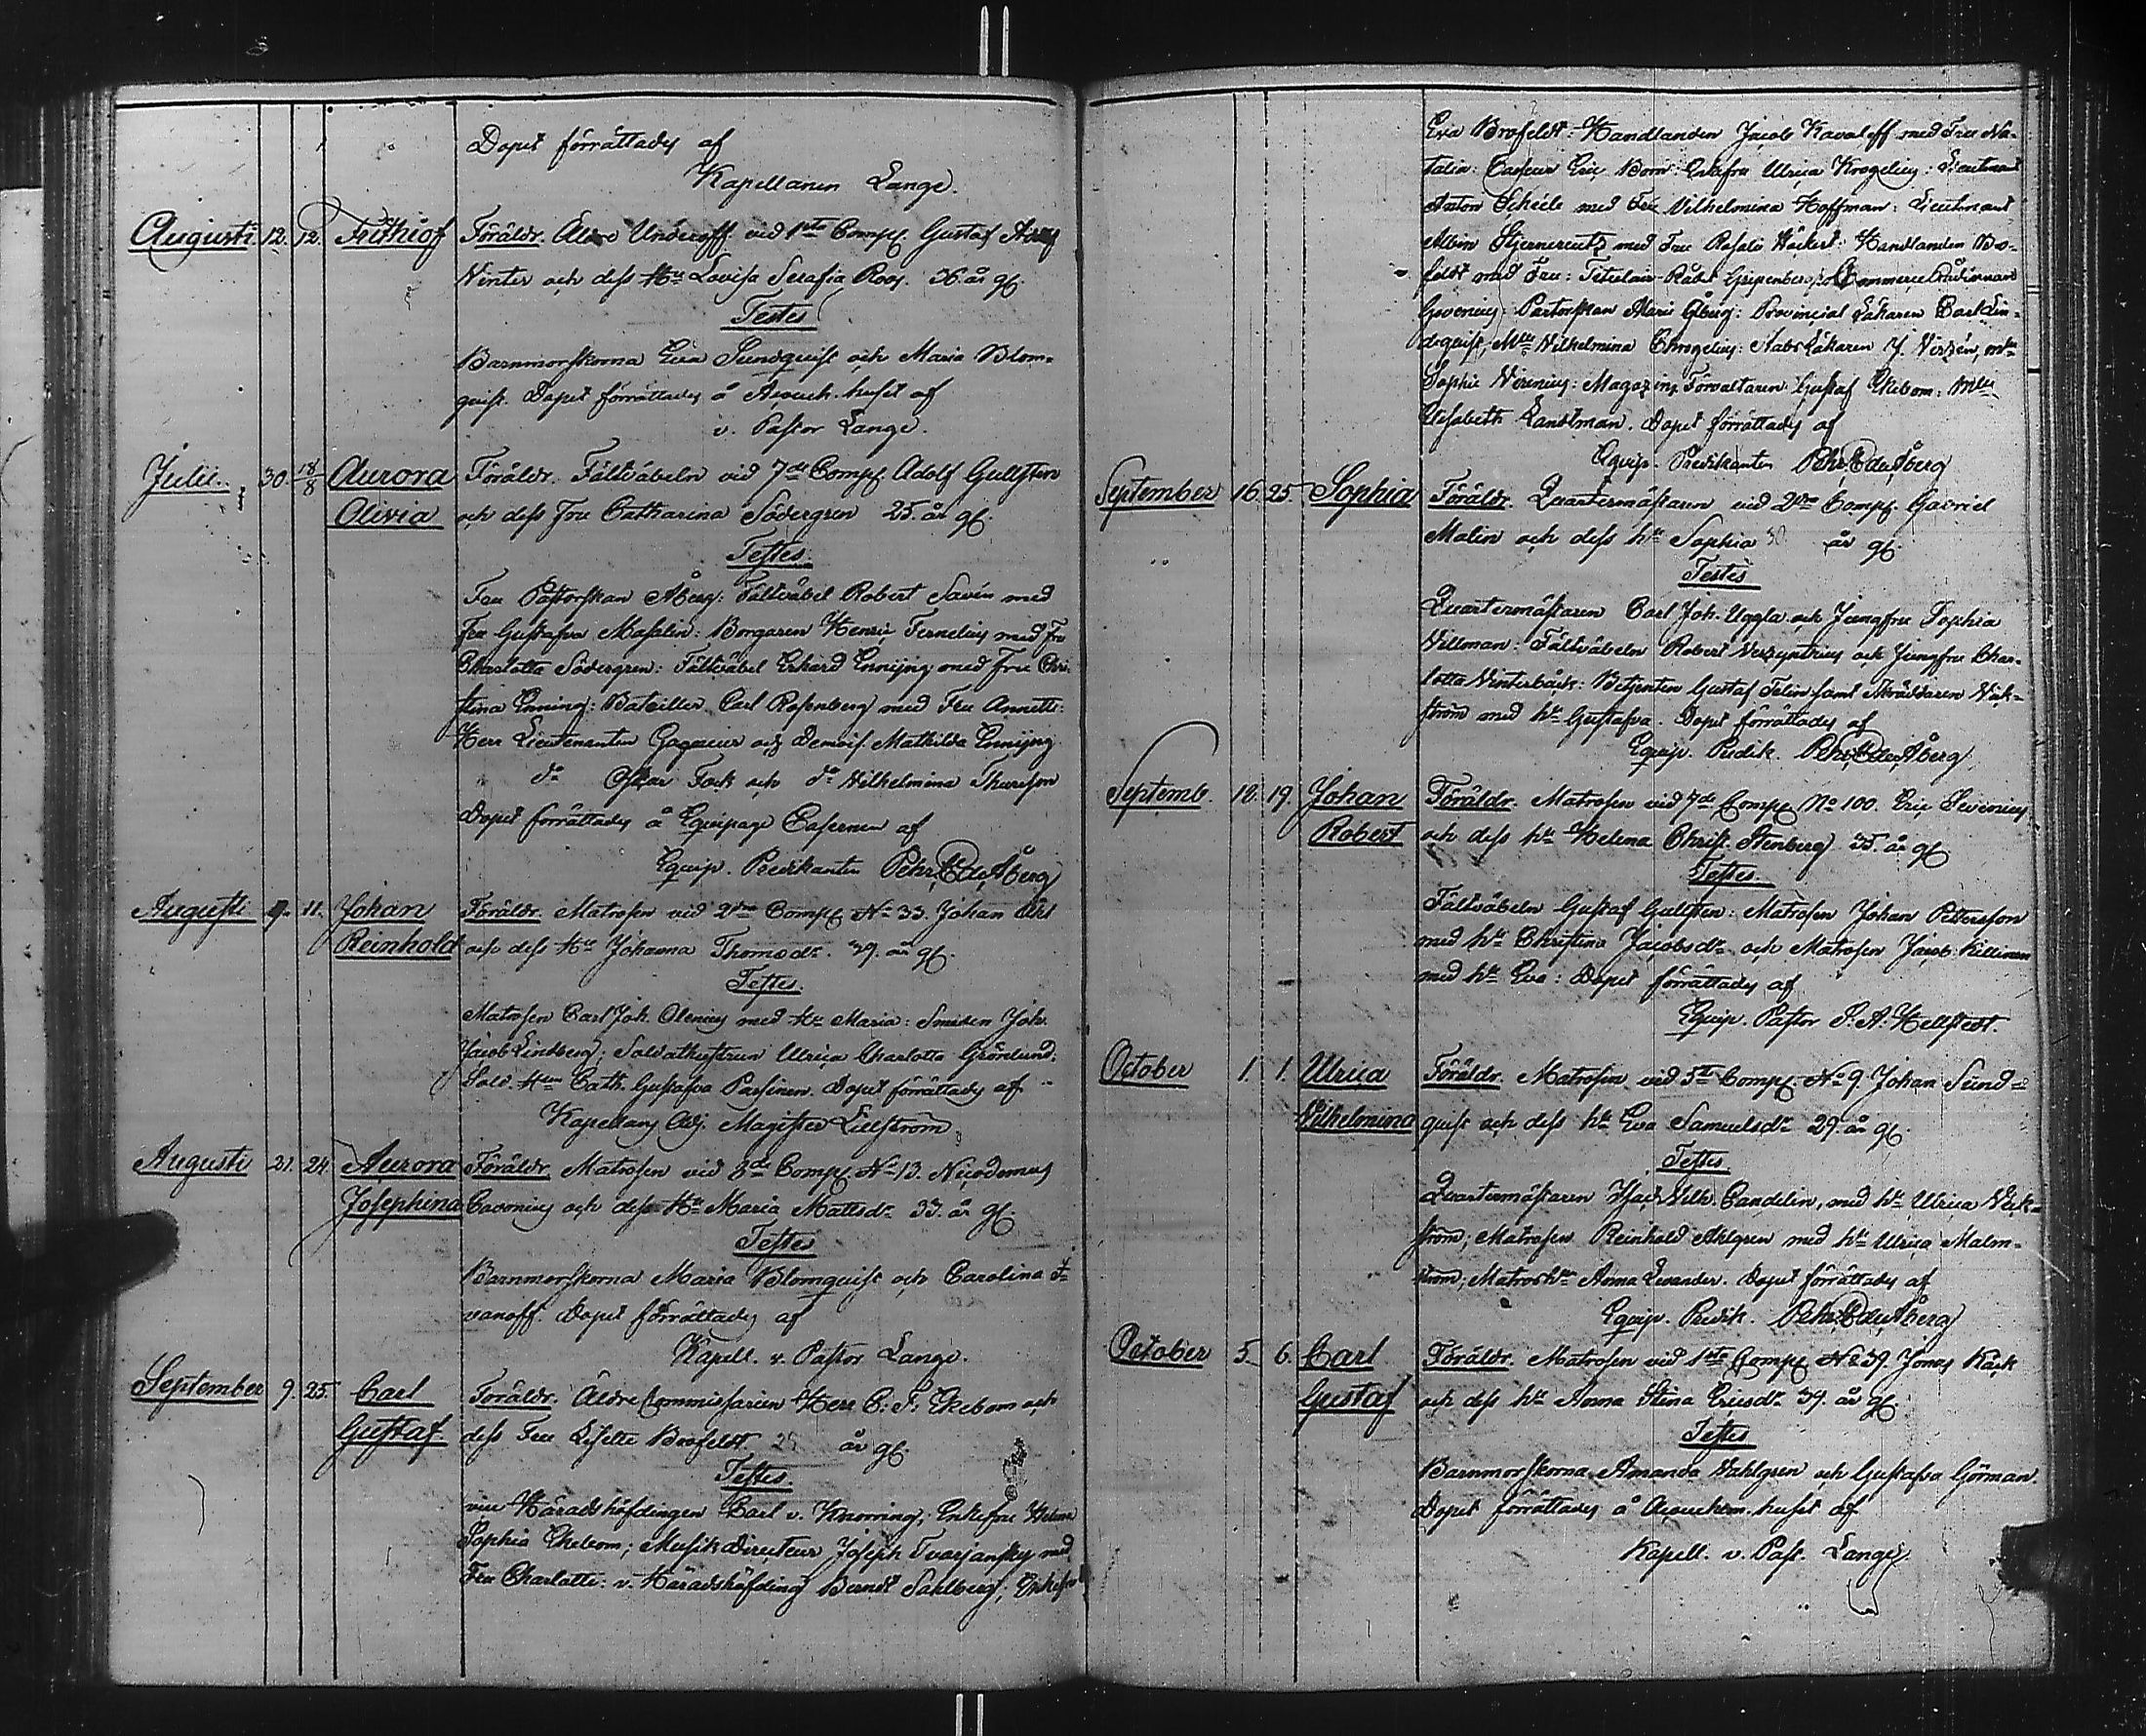 Dopet förrättades af
Kapellanen Lange.
Augusti 12. 12. Frithiof Föräldr. Äldre Underoff. vid 1sta Comp. Gustaf Adolf
Winter och dess Hu Lovisa Serafia Roos. 36. år gl.
Testes
Barnmorskorna Eva Sundquist och Maria Blom-
quist. Dopet förrättades å Accouch. huset af
v. Pastor Lange.
Julii. 30. 18/8 Aurora Föräldr. Fältväbeln vid 7de Comp. Adolf Gullsten
Olivia och dess Fru Catharina Södergren 25. år gl.
Testes.
Fru Pastorskan Åberg: Fältväbel Robert Savén med
Fru Gustafva Masalin: Borgaren Henric Ternelius med Fru
Charlotta Södergren: Fältväbel Erhard Enning med Fru Chri-
stina Enning: Carl Rosenberg med Fru Annette:
Herr Lieutenanten och Demois. Mathilda Enning
do Oskar Fock och do Wilhelmina
Dopet förrättades å Equipage Casernen af
Equip. Predikanten Pehr Ed. Åberg
Augusti 9. 11. Johan Föräldr. Matrosen vid 2dra Comp. No 33. Johan
Reinhold och dess Hu Johanna Thomasdr. 39. år gl.
Testes.
Matrosen Carl Joh. Olenius med Hu Maria: Smeden Joh.
Jacob Lindberg; Soldathustrun Ulrica Charlotta Grönlund:
Sold. Hun Cath. Gustafva Dopet förrättades af
Kapellans Adj. Magister Lillström
Augusti 21. 24. Aurora Föräldr. Matrosen vid 8de Comp. No 13. Nicodemus
Josephina Cavonius och dess Hu Maria Mattsdr. 33. år gl.
Testes
Barnmorskorna Maria Blomquist och Carolina I-
vanoff. Dopet förrättades af
Kapell. v. Pastor Lange.
September 9. 25. Carl Föräldr. Äldre Commissarien Herr C. F. Ekebom och
Gustaf. dess Fru Lisette Brofeldt 29 år gl.
Testes.
vice Häradshöfdingen Carl v. Knorring; Enkefru Helena
Sophia Ekebom; Musikdirecteur Joseph Tvarjansky med
Fru Charlotte: v. Häradshöfding Berndt Sahlberg; Enkefru
Eva Brofeldt: Handlanden Jacob Kavaleff med Fru Na-
talia: Casseur Eric Born: Enkefru Ulrica Krogelius: Lieutnant
Anton Schéele med Fru Vilhelmina Hoffman: Lieutnant
Albin Stjerncreutz med Fru Rosalie Häckert: Handlanden Bro-
feldt med Fru: Titulair-Rådet Gripenberg:
Pastorskan Marie Åberg: Provincial Läkaren Carl Lin-
dequist, Mlle Wilhelmina Krogelius: Stabs Läkaren J. Mlle
Sophie Magazins Förvaltaren Gustaf Ekebom: Mlle
Elisabeth Landtman. Dopet förrättades af
Equip. Predikanten Pehr Ed. Åberg
September 16. 25. Sophia Föräldr. Quartermästaren vid 2dra Comp. Gabriel
Malin och dess hu Sophia 30 år gl.
Testes
Quartermästaren Carl Joh. Uggla och Jungfru Sophia
Willman: Fältväbeln Robert och Jungfru Char-
lotta Winterbäck: Betjenten Gustaf Felin samt Skräddaren Wik-
ström med hu Gustafva. Dopet förrättades af
Equip. Predik. Pehr Ed. Åberg
Septemb. 18. 19. Johan Föräldr. Matrosen vid 7de Comp. No 100. Eric Severius
Robert och dess hu Helena Christ. Stenberg 35. år gl.
Testes.
Fältväbeln Gustaf Gullsten: Matrosen Johan Pettersson
med hu Christina Jacobsdr och Matrosen Jacob Killinen
med hu Eva: Dopet förrättades af
Equip. Pastor S. A. Hellstedt.
October 1. 1. Ulrica Föräldr. Matrosen vid 5te Comp. No 9. Johan Sund-
Vilhelmina quist och dess hu Eva Samuelsdr 29. år gl.
Testes
Quartermästaren Isac Wilh. Candelin, med hu Ulrica Wik-
ström; Matrosen Reinhold Ahlgren med hu Ulrica Malm-
ström; Matroshu Anna Levander. Dopet förrättades af
Equip. Predik. Pehr Ed. Åberg
October 5. 6. Carl Föräldr. Matrosen vid 1sta Comp. No 39. Jonas Käck
Gustaf och dess hu Anna Stina Ericsdr 39. år gl.
Testes
Barnmorskorna Amanda Wahlgren och Gustafva Görman.
Dopet förrättades å Accouchem. huset af
Kapell. v. Past. Lange.